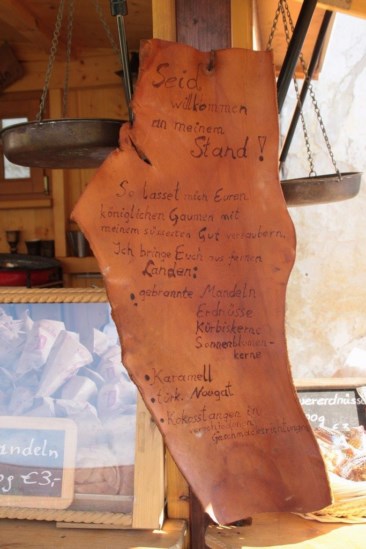 Seid
willkommen
an meinem
Stand!
So lasset mich Euren
königlichen Gaumen mit
meinem süssesten Gut verzaubern.
Ich bringe Euch aus fernen
Landen:
• gebrannte Mandeln
Erdnüsse
Kürbiskerne
Sonnenblumen-
kerne
• Karamell
• türk. Nougat
• Kokosstangen in
verschiedenen
Geschmacksrichtungen
andeln
0g €3,-
uererdnüsse
00g